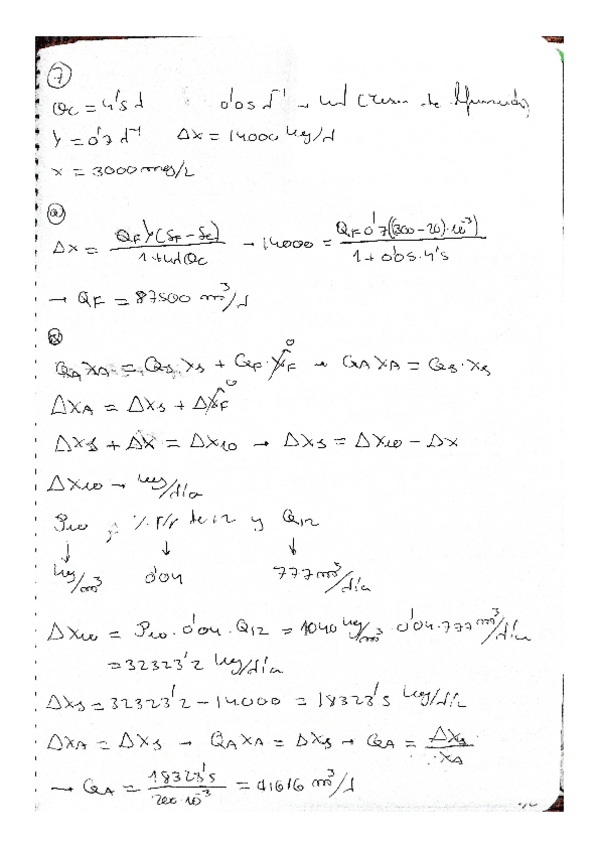 7
θc = 4's d 0'05 d⁻¹ → kd (
y = 0'7 d⁻¹ ΔX = 14000 kg/d
x = 3000 mg/L
a
ΔX = QF Y(SF - Se) / 1 + kd θc → 14000 = QF 0'7((300 - 20)·10⁻³) / 1 + 0'05·4's
→ QF = 87500 m³/d
QA XA = Qs·Xs + QF·XF⁰ → QA XA = Qs·Xs
ΔXA = ΔXs + ΔXF⁰
ΔXs + ΔX = ΔX10 → ΔXs = ΔX10 - ΔX
ΔX10 → kg/día
ρ10 ; % P/P de 12 y Q12
↓ ↓ ↓
kg/m³ 0'04 777 m³/día
ΔX10 = ρ10·0'04·Q12 = 1040 kg/m³·0'04·777 m³/día
= 32323'2 kg/día
ΔXs = 32323'2 - 14000 = 18323's kg/día
ΔXA = ΔXs → QA XA = ΔXs → QA = ΔXs / XA
→ QA = 18323's / 200·10⁻³ = 91616 m³/d